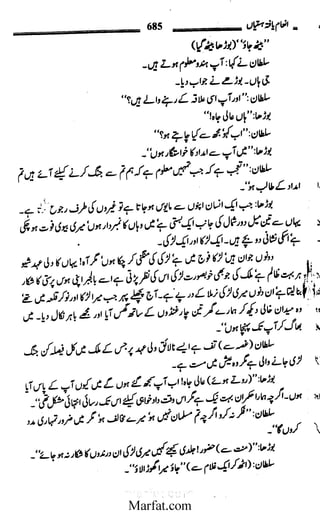 انعام یافتہ ہستیاں 685
"بیٹھ جاؤ" (بوڑھا بیٹھ گیا)
سلطان نے کہا: آپ ہندو معلوم ہوتے ہیں۔
جی ہاں۔ بوڑھے نے جواب دیا۔
سلطان: "اور آپ اسی علاقہ کے رہنے والے ہیں؟"
بوڑھا: "ہاں عالی جاہ!"
سلطان: "اب کچھ مجھ سے کیا چاہتے ہو؟"
بوڑھا: "میں آپ سے امداد کا خواستگار ہوں"۔
سلطان: "تعجب ہے کہ جب تمہیں معلوم ہے کہ ہم تم سے جنگ کرنے کیلئے آئے ہیں تم
امداد کے طالب ہو"۔
بوڑھا: جب ایک انسان اپنوں سے مایوس ہو جاتا ہے تو غیروں کی طرف رجوع ہے۔
یہاں سے تین میل دور شمال کی جانب ایک بستی ہے میں وہاں کا نمبردار ہوں میری بیوی فوت ہو چکی
ہے اسکی نشانی دو بچے ہیں۔ ایک لڑکا اور ایک لڑکی۔
دونوں جوان ہیں لڑکا فوج میں ہے لڑکی کی منگنی کر چکا ہوں مگر آہ! یہاں کا ولی عہد شیو
بہت ظالم ہے ملک کی جو بھی خوبصورت لڑکی اس کی نظر پڑتی ہے اسے بالجبر اپنی ہوس کا شکار
بنا لیتا ہے ان دنوں میری لڑکی نرملا کے درپے ہے۔ آج پچھلے پہر جب میرا لڑکا اور نوکر قلعہ میں تھے
وہ میدان خالی دیکھ کر ہمارے گھر تین چار غنڈوں کے ساتھ گھس آیا اور مجھے باہر نکال دیا۔ میں
بھاگ کر آپ تک پہنچا ہوں"۔
سلطان (غصہ سے) تف ہے ایسے نالائق ولی عہد پر جس کے ملک میں کل فیصلہ کن جنگ
لڑی جانے والی ہے مگر وہ عیش میں مست ہے۔
بوڑھا: "(روتے ہوئے) عالی جاہ! اب آپ سمجھ گئے ہوں گے میں کیوں آپ کے پاس آیا
ہوں۔ اگرچہ ہمارا حکمران بہت نیک ہے مگر اس وقت داد خواہی کیلئے اس تک رسائی انتہائی مشکل تھی"۔
سلطان: "فکر نہ کرو اگرچہ تم مسلمان نہیں ہو میرے مخالف ہو مگر میں ضرور تمہاری مدد
کروں گا"۔
بوڑھا: "(منت سے) حضور! جلدی کیجئے کہیں میری لڑکی ان درندوں کا شکار نہ ہو جائے"۔
سلطان: (اٹھ کر ایک غلام سے) "جاؤ میرا گھوڑا لاؤ"۔
Marfat.com